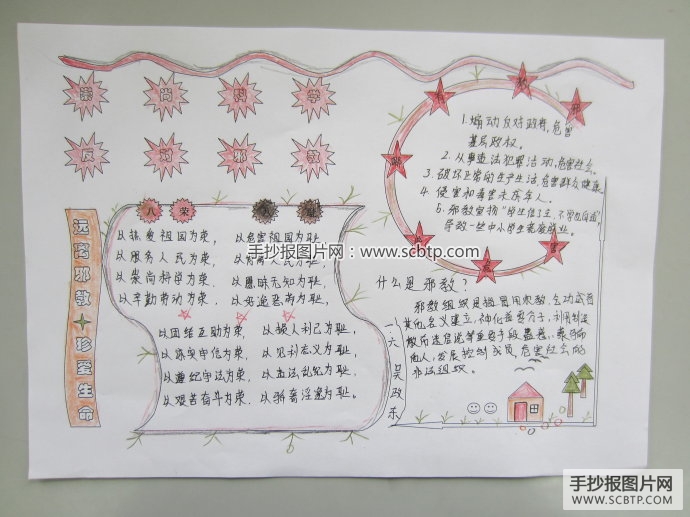 崇尚科学
反对邪教
远离邪教 珍爱生命
八荣
以热爱祖国为荣，以危害祖国为耻，
以服务人民为荣，以背离人民为耻，
以崇尚科学为荣，以愚昧无知为耻，
以辛勤劳动为荣，以好逸恶劳为耻，
以团结互助为荣，以损人利己为耻，
以诚实守信为荣，以见利忘义为耻，
以遵纪守法为荣，以违法乱纪为耻，
以艰苦奋斗为荣，以骄奢淫逸为耻。
1.煽动反对政府，危害
基层政权。
2.从事违法犯罪活动，危害社会。
3.破坏正常的生产生活，危害群众健康
4.侵害和毒害未成年人。
5.邪教宣扬"学生信了主，不学也自成"
导致一些中小学生荒废学业。
什么是邪教？
邪教组织是指冒用宗教、气功或者
其他名义建立，神化首要分子，利用制造
散布迷信邪说等手段蛊惑、蒙骗
他人，发展控制成员，危害社会的
非法组织。
一六 吴政乐
手抄报图片网：www.scbtp.com
手抄报图片网
WWW.SCBTP.COM